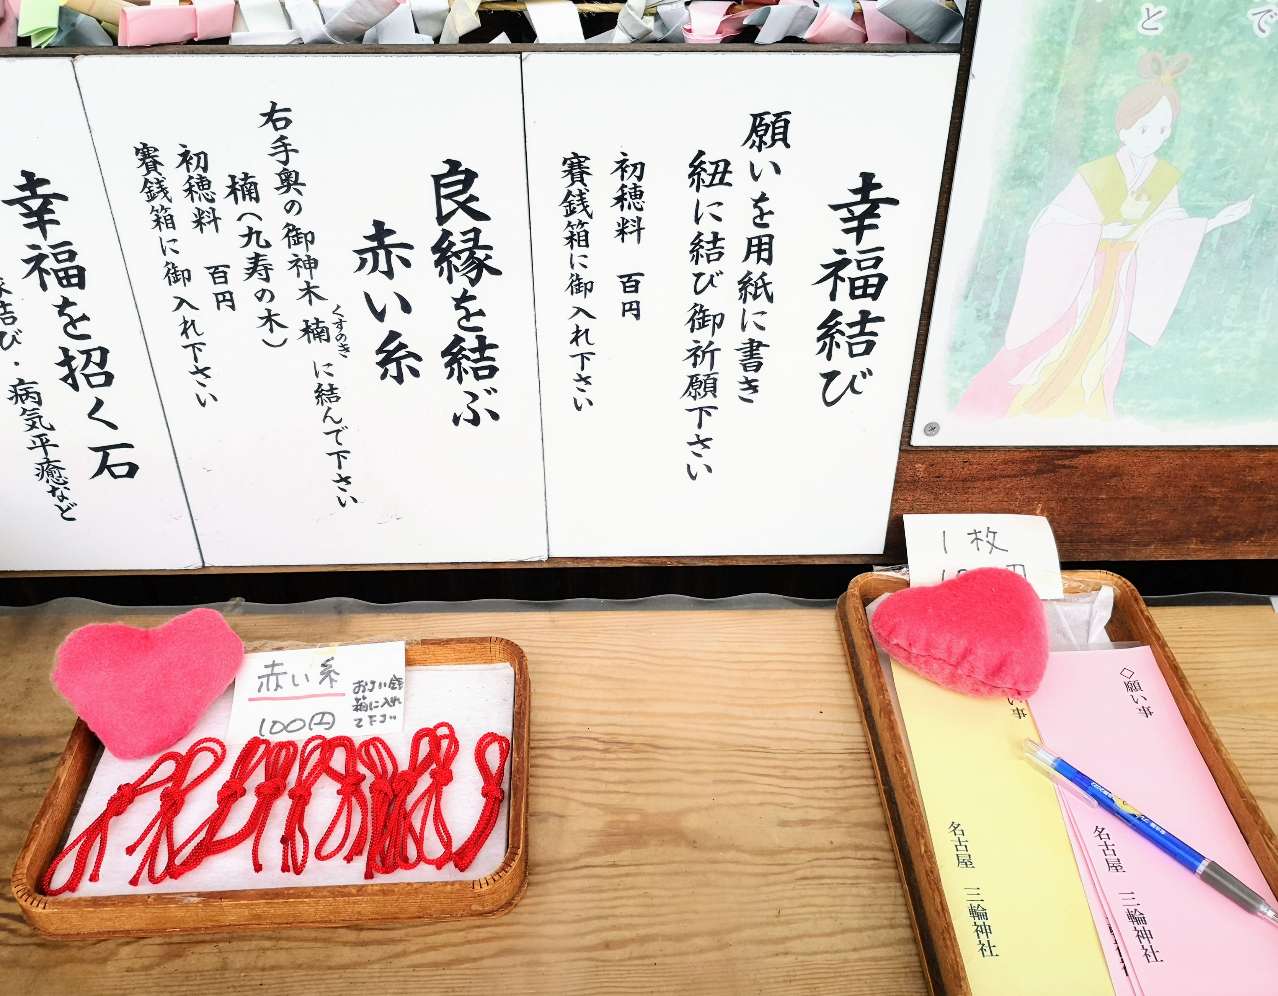 と
で
幸福結び
願いを用紙に書き
紐に結び御祈願下さい
初穂料 百円
賽銭箱に御入れ下さい
良縁を結ぶ
赤い糸
右手奥の御神木楠に結んで下さい
くすのき
楠(九寿の木)
初穂料 百円
賽銭箱に御入れ下さい
幸福を招く石
結び・病気平癒など
1枚
赤い糸
100円
おさい銭
箱に入れ
て下さい
い事
名古屋 三輪神社
◇願い事
名古屋 三輪神社